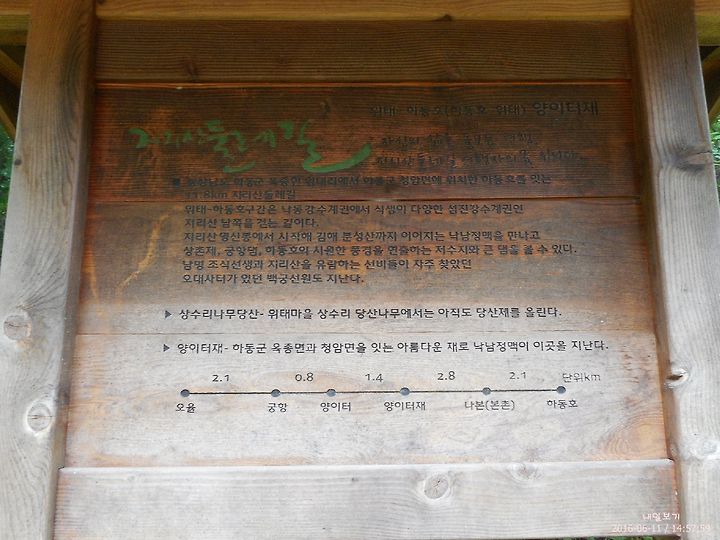 위태-하동호(하동호-위태) 양이터재
지리산둘레길
■ 경상남도 하동군 옥종면 위태리에서 하동군 청암면에 위치한 하동호를 잇는
11.8km 지리산둘레길
위태-하동호구간은 낙동강수계권에서 식생이 다양한 섬진강수계권인
지리산 남쪽을 걷는 길이다.
지리산 영신봉에서 시작해 김해 분성산까지 이어지는 낙남정맥을 만나고
상촌재, 궁항댐, 하동호의 시원한 풍경을 연출하는 저수지와 큰 댐을 볼 수 있다.
남명 조식선생과 지리산을 유람하는 선비들이 자주 찾았던
오대사터가 있던 백궁선원도 지난다.
▶ 상수리나무당산- 위태마을 상수리 당산나무에서는 아직도 당산제를 올린다.
▶ 양이터재- 하동군 옥종면과 청암면을 잇는 아름다운 재로 낙남정맥이 이곳을 지난다.
2.1 0.8 1.4 2.8 2.1 단위km
오율 궁항 양이터 양이터재 나본(본촌) 하동호
내일보기
2016-06-11 / 14:57:59